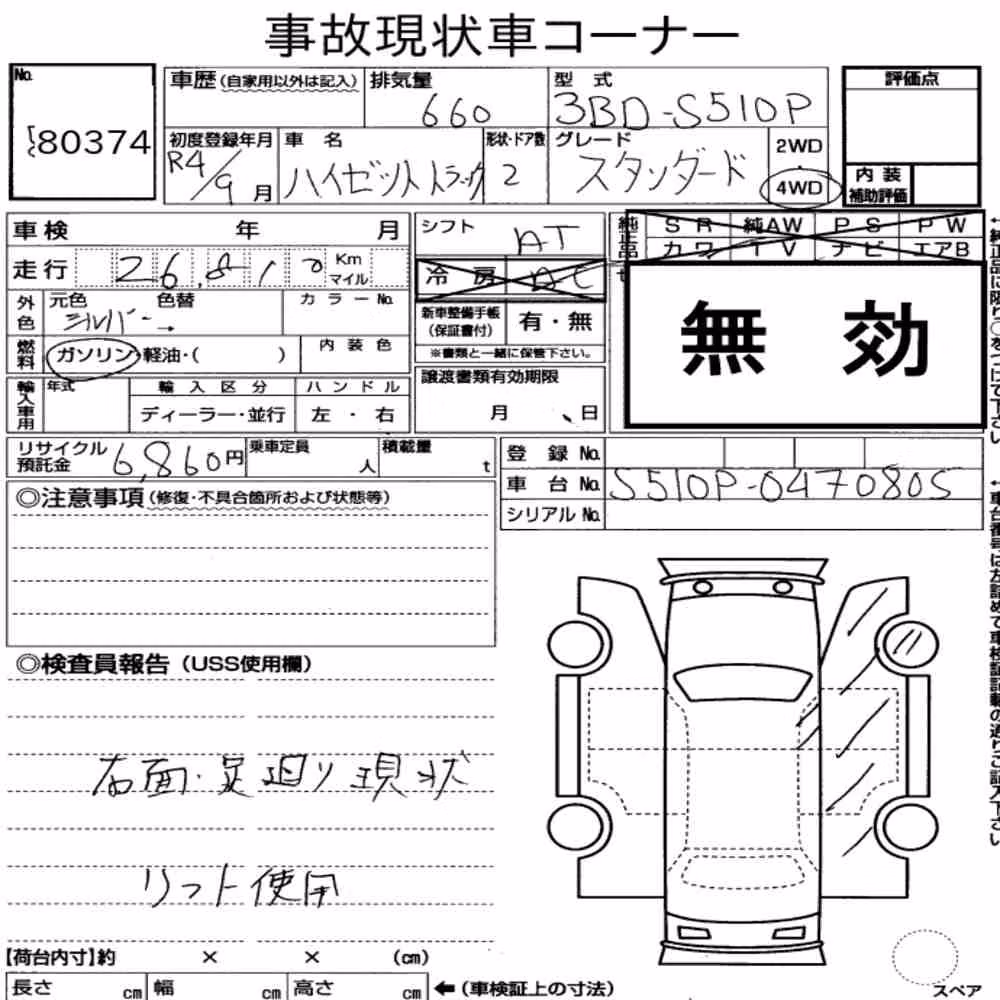 事故現状車コーナー
No.
80374
車歴(自家用以外は記入)
排気量
660
型 式
3BD-S510P
評価点
初度登録年月
R4/9月
車 名
ハイゼットトラック
形状・ドア数
2
グレード
スタンダード
2WD
4WD
内装
補助評価
車検 年 月
走行 26,810 Km
マイル
シフト
AT
冷房 AC
純正品
SR 純AW PS PW
カワ TV ナビ エアB
無 効
外色
元色 色替 カラーNo.
シルバー
燃料
ガソリン・軽油・( )
内装色
新車整備手帳
(保証書付)
有・無
※書類と一緒に保管下さい。
輸入車用
年式
輸入区分
ハンドル
ディーラー・並行
左・右
譲渡書類有効期限
月 日
リサイクル
預託金
6,860円
乗車定員
人
積載量
t
登 録 No.
車 台 No. S510P-0470805
シリアル No.
◎注意事項(修復・不具合箇所および状態等)
◎検査員報告(USS使用欄)
右面・足廻り現状
リフト使用
【荷台内寸】約 × × (cm)
長さ cm 幅 cm 高さ cm ←(車検証上の寸法)
スペア